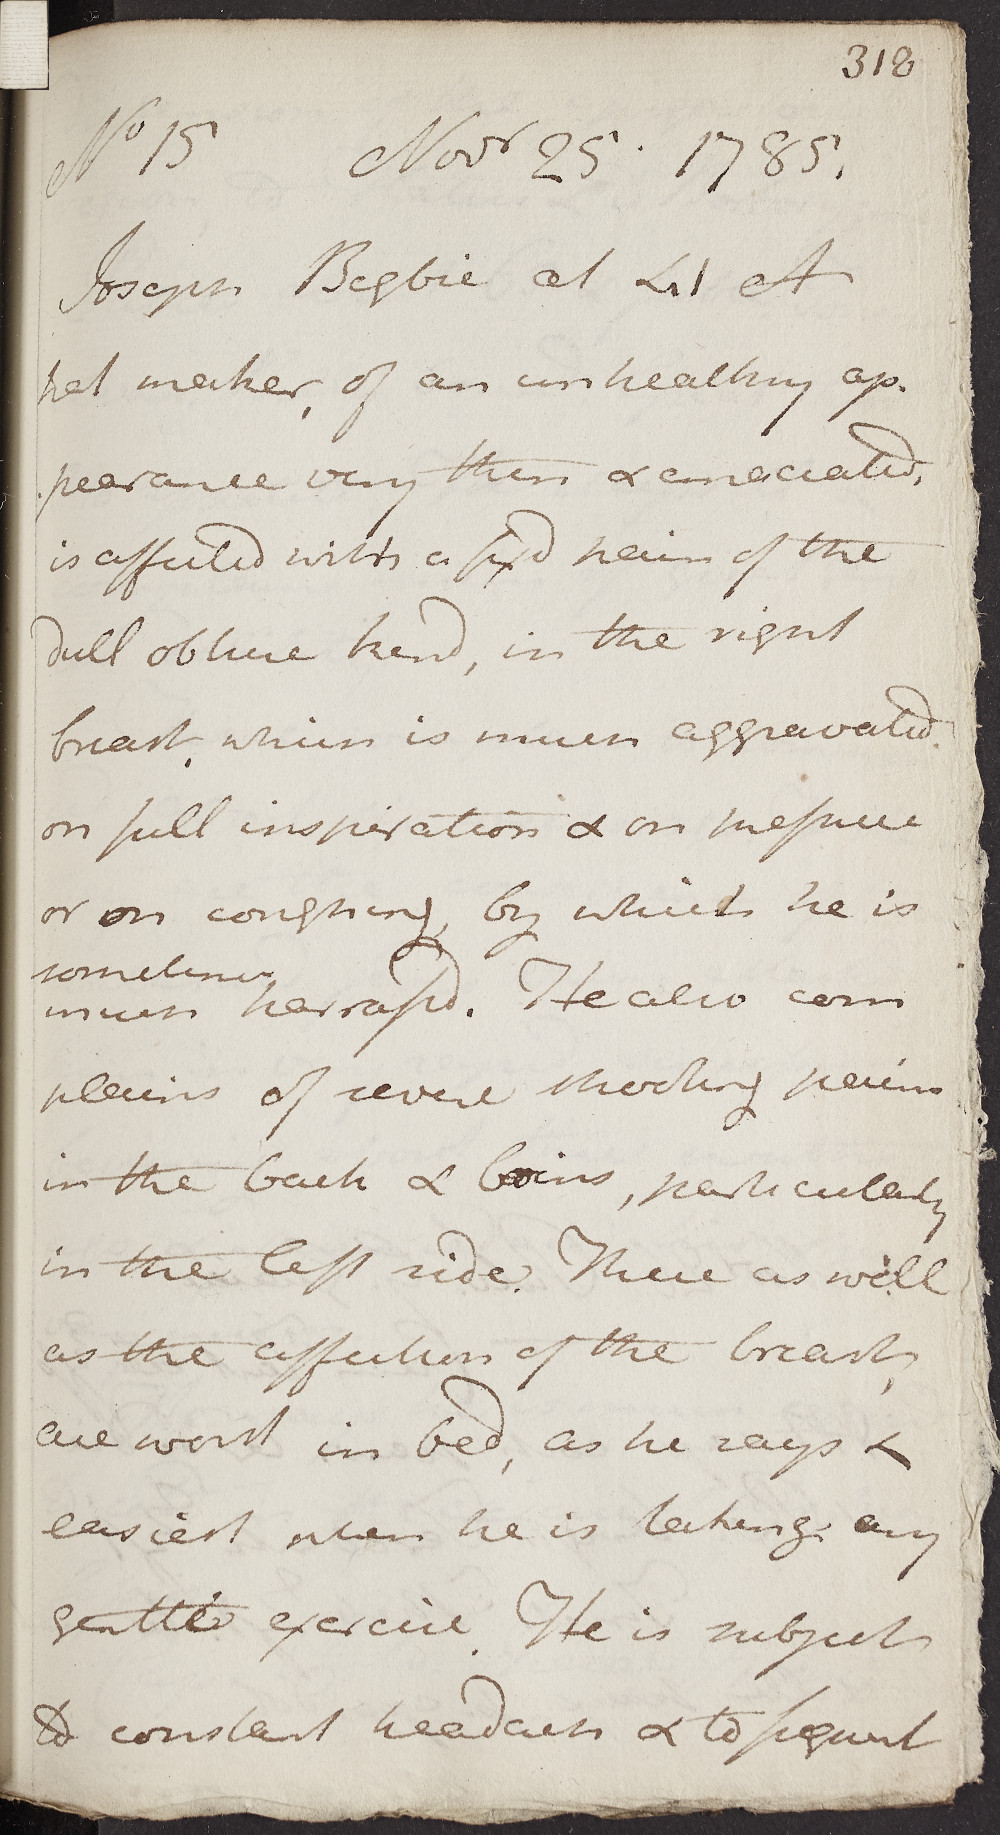 318
No 15 Novr 25. 1785.
Joseph Begbie æt 41 A
pet maker, of an unhealthy ap.
pearance very thin & emaciated,
is affected with a fixd pain of the
dull obtuse kend, in the right
breast, which is much aggravated
on full inspiration & on pressure
or on coughing, by which he is
sometimes
much harrassd. He also com
plains of severe shooting pains
in the back & loins, particularly
in the left side. These as well
as the affection of the breast,
are worst in bed, as he says &
easiest when he is taking any
gentle exercise. He is subject
to constant headach & to frequent